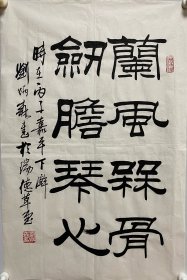 蘭風槑骨
劒膽琴心
時在丙子嘉平下澣
劉炳森書於海德草堂